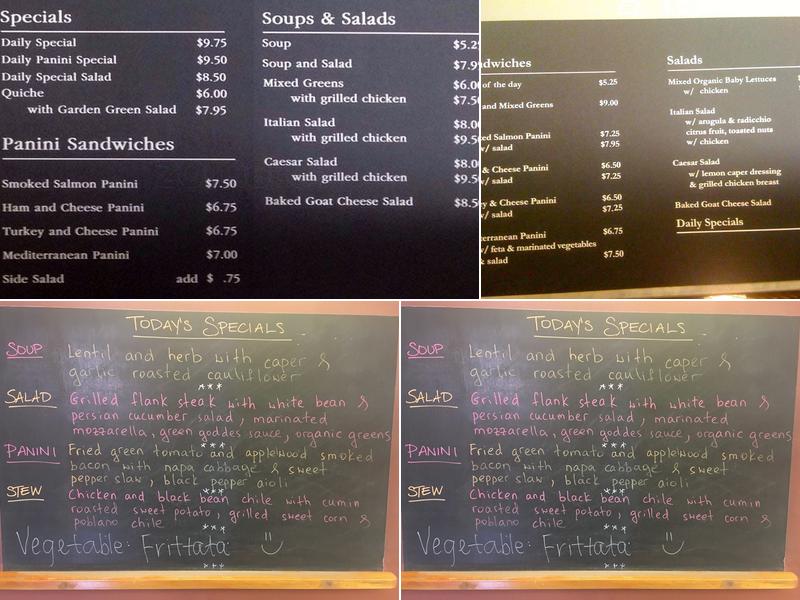 Specials
Daily Special $9.75
Daily Panini Special $9.50
Daily Special Salad $8.50
Quiche $6.00
with Garden Green Salad $7.95
Panini Sandwiches
Smoked Salmon Panini $7.50
Ham and Cheese Panini $6.75
Turkey and Cheese Panini $6.75
Mediterranean Panini $7.00
Side Salad add $ .75
Soups & Salads
Soup $5.2
Soup and Salad $7.9
Mixed Greens $6.0
with grilled chicken $7.5
Italian Salad $8.0
with grilled chicken $9.5
Caesar Salad $8.0
with grilled chicken $9.5
Baked Goat Cheese Salad $8.5
dwiches
of the day $5.25
and Mixed Greens $9.00
ed Salmon Panini $7.25
w/ salad $7.95
& Cheese Panini $6.50
w/ salad $7.25
y & Cheese Panini $6.50
w/ salad $7.25
terranean Panini $6.75
w/ feta & marinated vegetables
& salad $7.50
Salads
Mixed Organic Baby Lettuces
w/ chicken
Italian Salad
w/ arugula & radicchio
citrus fruit, toasted nuts
w/ chicken
Caesar Salad
w/ lemon caper dressing
& grilled chicken breast
Baked Goat Cheese Salad
Daily Specials
TODAY'S SPECIALS
SOUP Lentil and herb with caper &
garlic roasted cauliflower
***
SALAD Grilled flank steak with white bean &
persian cucumber salad, marinated
mozzarella, green goddes sauce, organic greens
***
PANINI Fried green tomato and applewood smoked
bacon with napa cabbage & sweet
pepper slaw, black pepper aioli
***
STEW Chicken and black bean chile with cumin
roasted sweet potato, grilled sweet corn &
poblano chile
***
Vegetable: Frittata
***
TODAY'S SPECIALS
SOUP Lentil and herb with caper &
garlic roasted cauliflower
***
SALAD Grilled flank steak with white bean &
persian cucumber salad, marinated
mozzarella, green goddes sauce, organic greens
***
PANINI Fried green tomato and applewood smoked
bacon with napa cabbage & sweet
pepper slaw, black pepper aioli
***
STEW Chicken and black bean chile with cumin
roasted sweet potato, grilled sweet corn &
poblano chile
***
Vegetable: Frittata
***